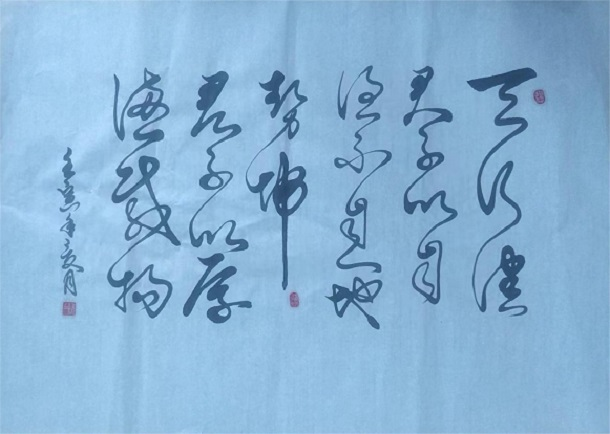 天行健
君子以自
强不息地
勢坤
君子以厚
德載物
壬寅年夏月